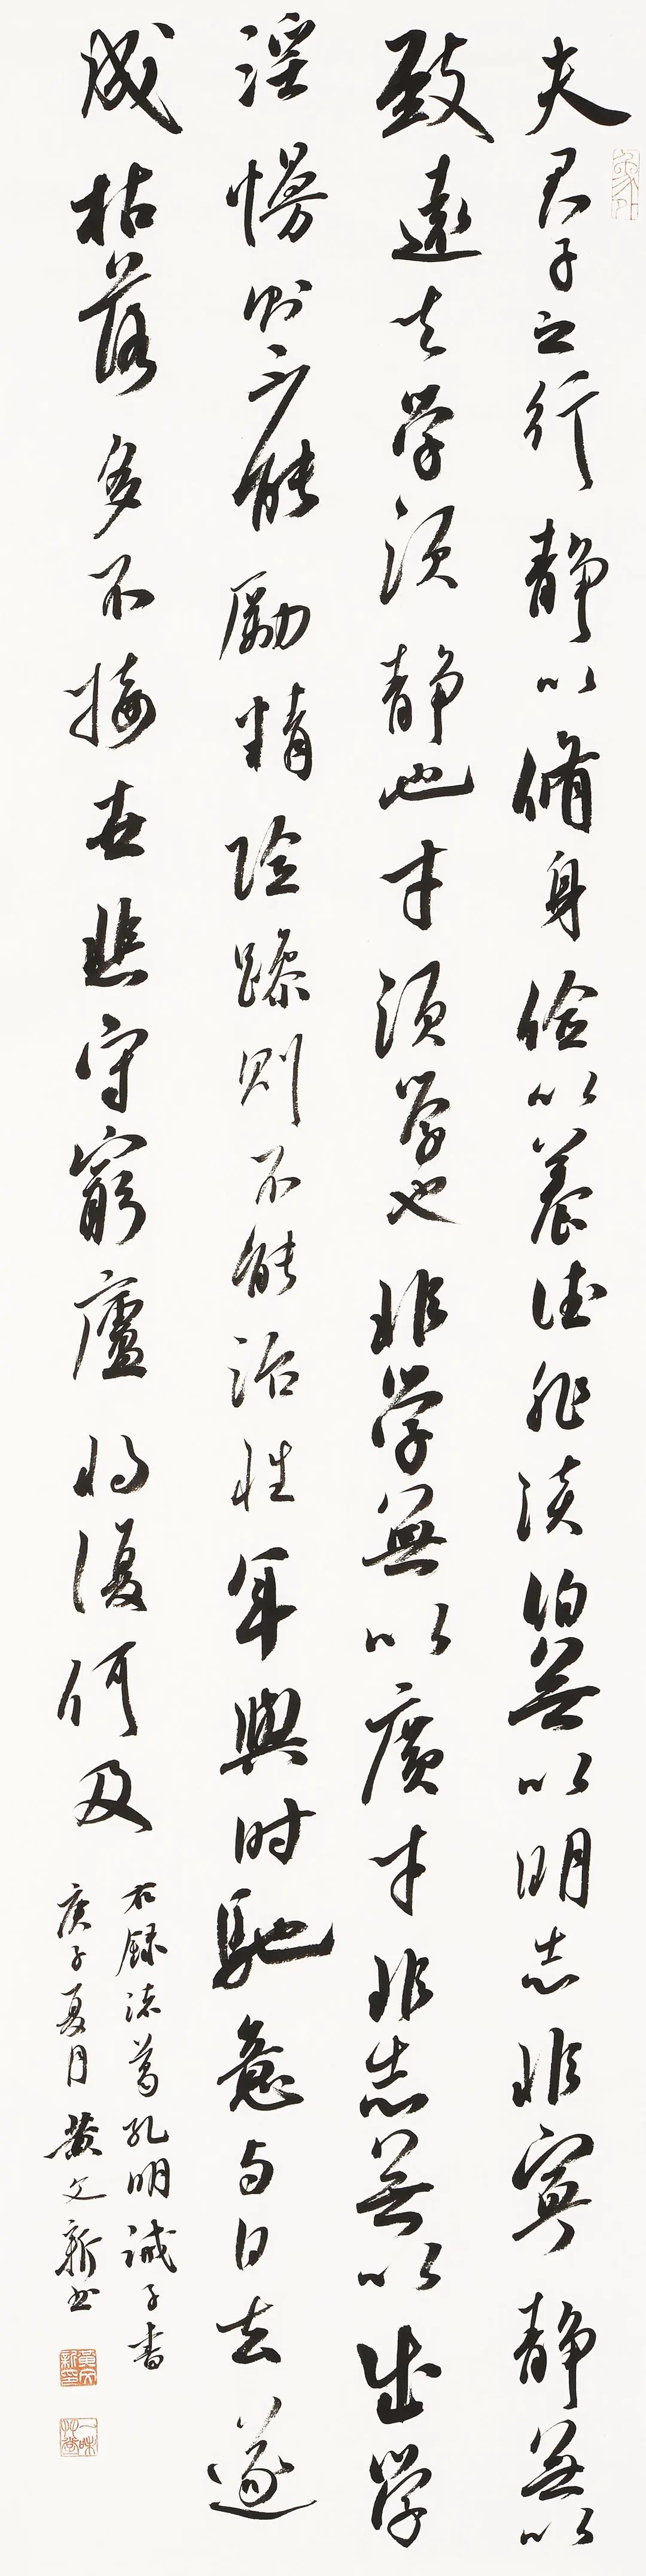 夫君子之行静以脩身俭以养德非淡泊無以明志非寧静無以
致遠夫学須静也才須学也非学無以廣才非志無以成学
淫慢則不能励精险躁則不能治性年與时馳意与日去遂
成枯落多不接世悲守窮廬将復何及
右録诸葛孔明诫子書
庚子夏月黄文新书